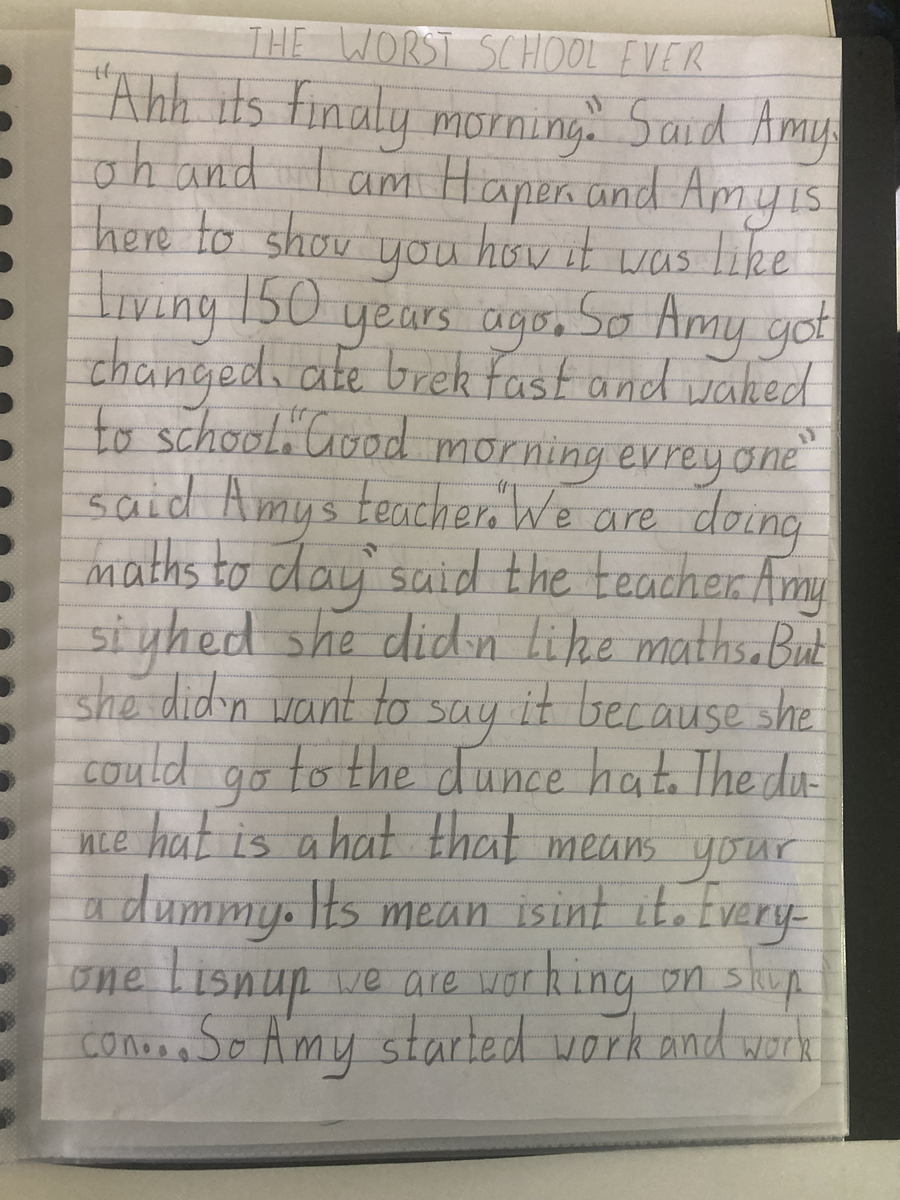 THE WORST SCHOOL EVER
"Ahh its finaly morning." Said Amy.
oh and I am Haper. and Amy is
here to show you how it was like
living 150 years ago. So Amy got
changed, ate brekfast and walked
to school. "Good morning evrey one"
said Amys teacher. "We are doing
maths to day" said the teacher. Amy
siyhed she did'n like maths. But
she did'n want to say it because she
could go to the dunce hat. The du-
nce hat is a hat that means your
a dummy. Its mean isint it. Every-
one lisnup we are working on skip
con.... So Amy started work and work